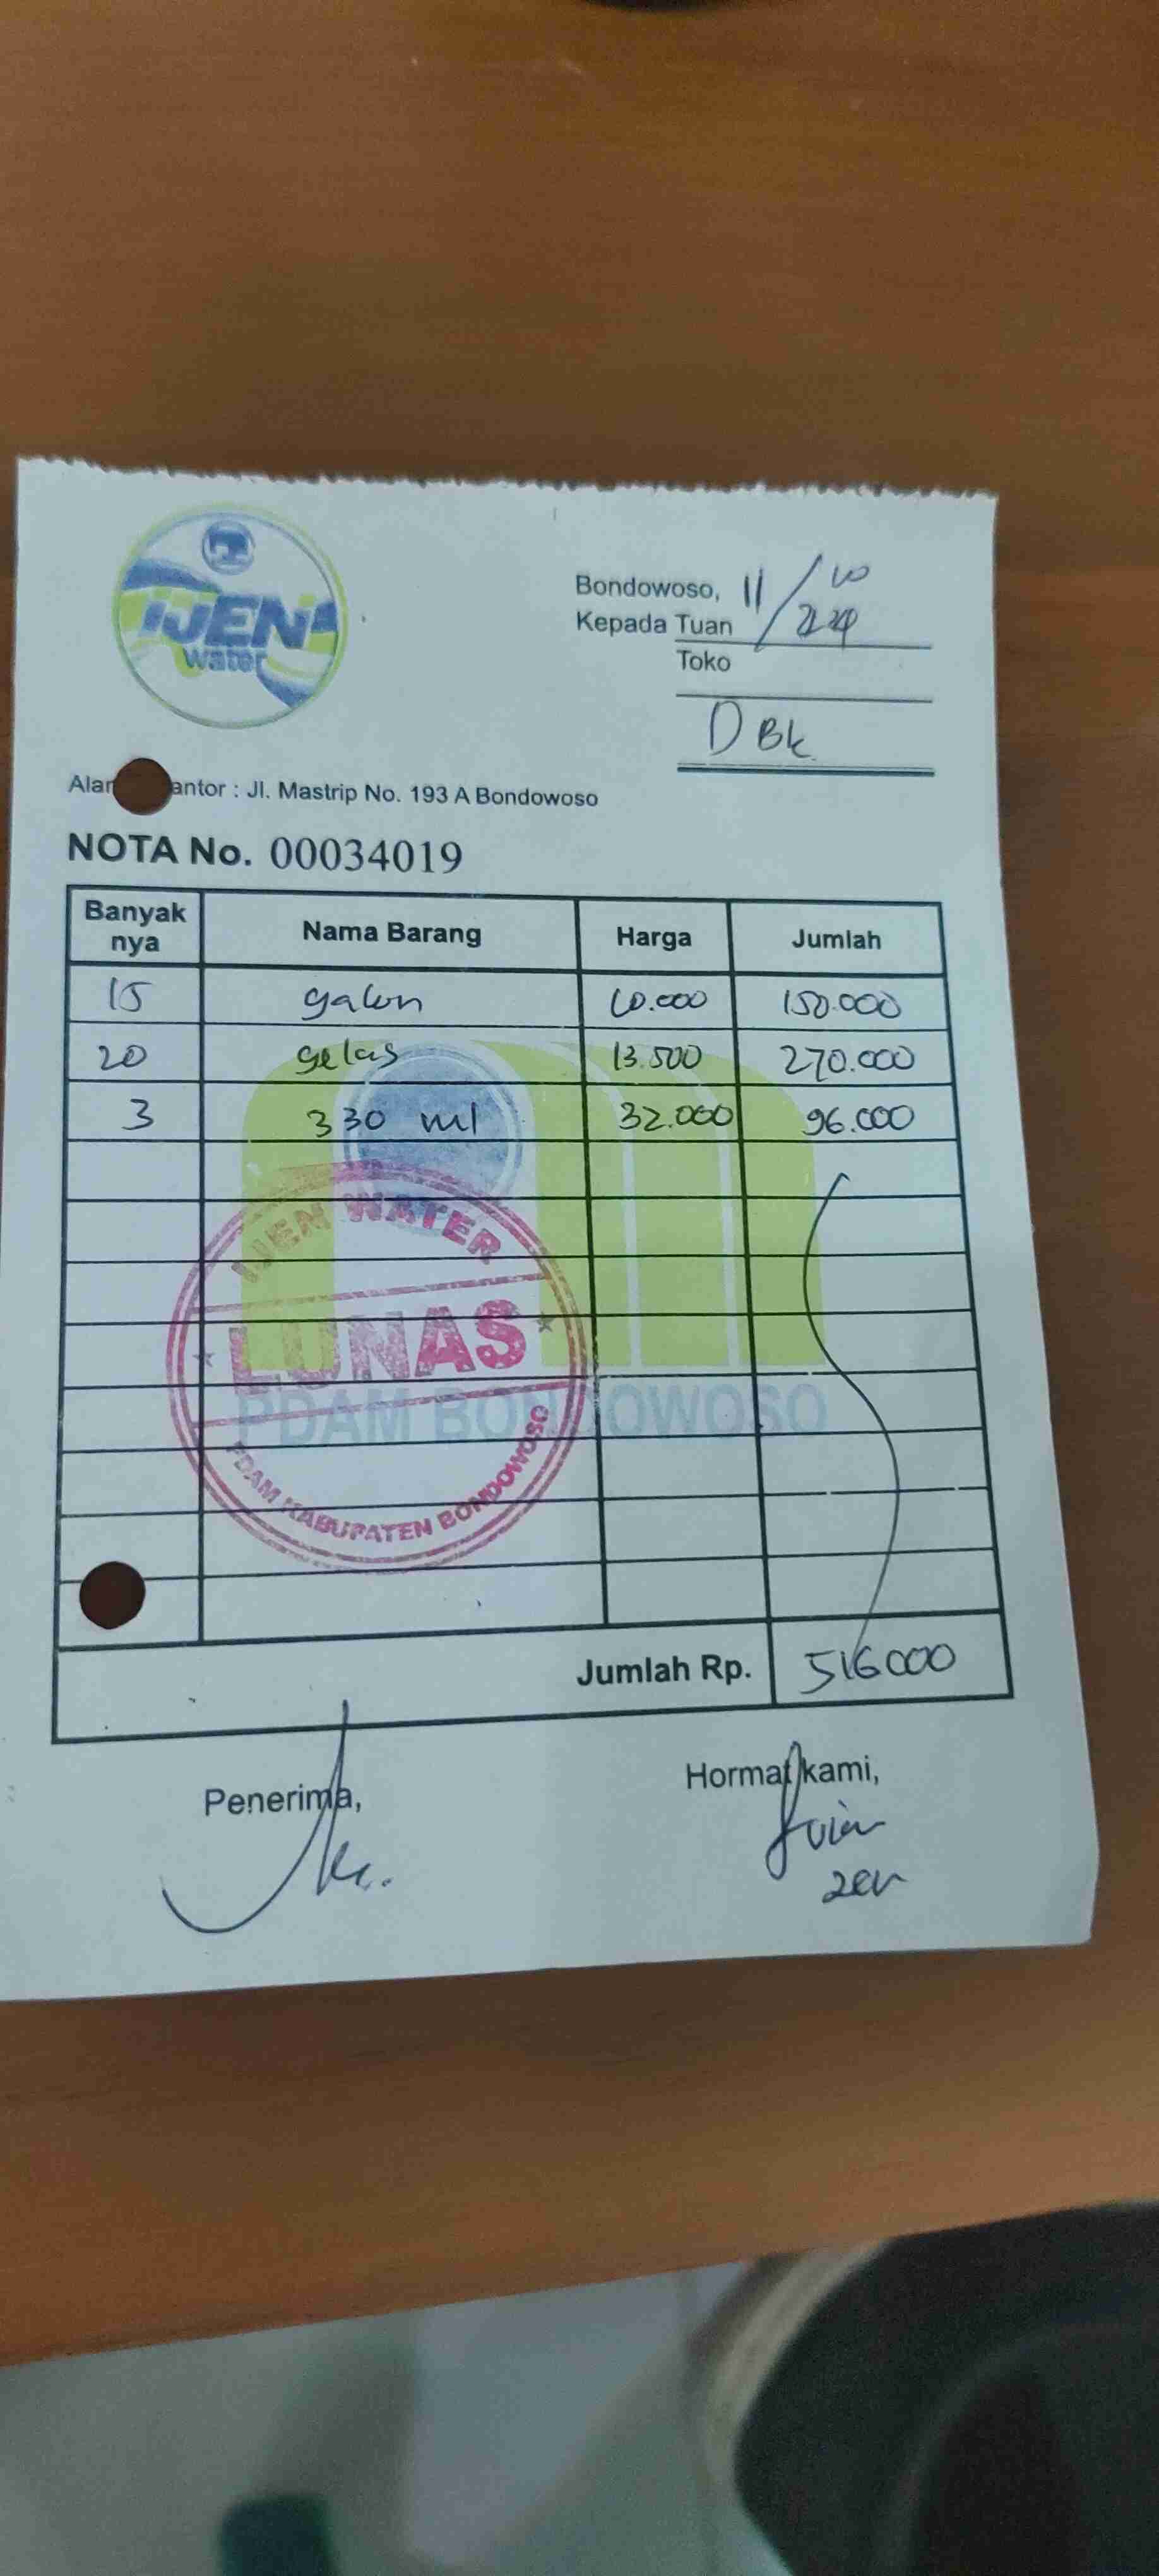 IJEN
water
Bondowoso, 11/10
Kepada Tuan
Toko
DBK
Alam antor : Jl. Mastrip No. 193 A Bondowoso
NOTA No. 00034019
Banyak nya Nama Barang Harga Jumlah
15 galon 10.000 150.000
20 gelas 13.500 270.000
3 330 ml 32.000 96.000
IJEN WATER
LUNAS
PDAM BONDOWOSO
PDAM KABUPATEN BONDOWOSO
Jumlah Rp. 516000
Penerima, Hormat kami,